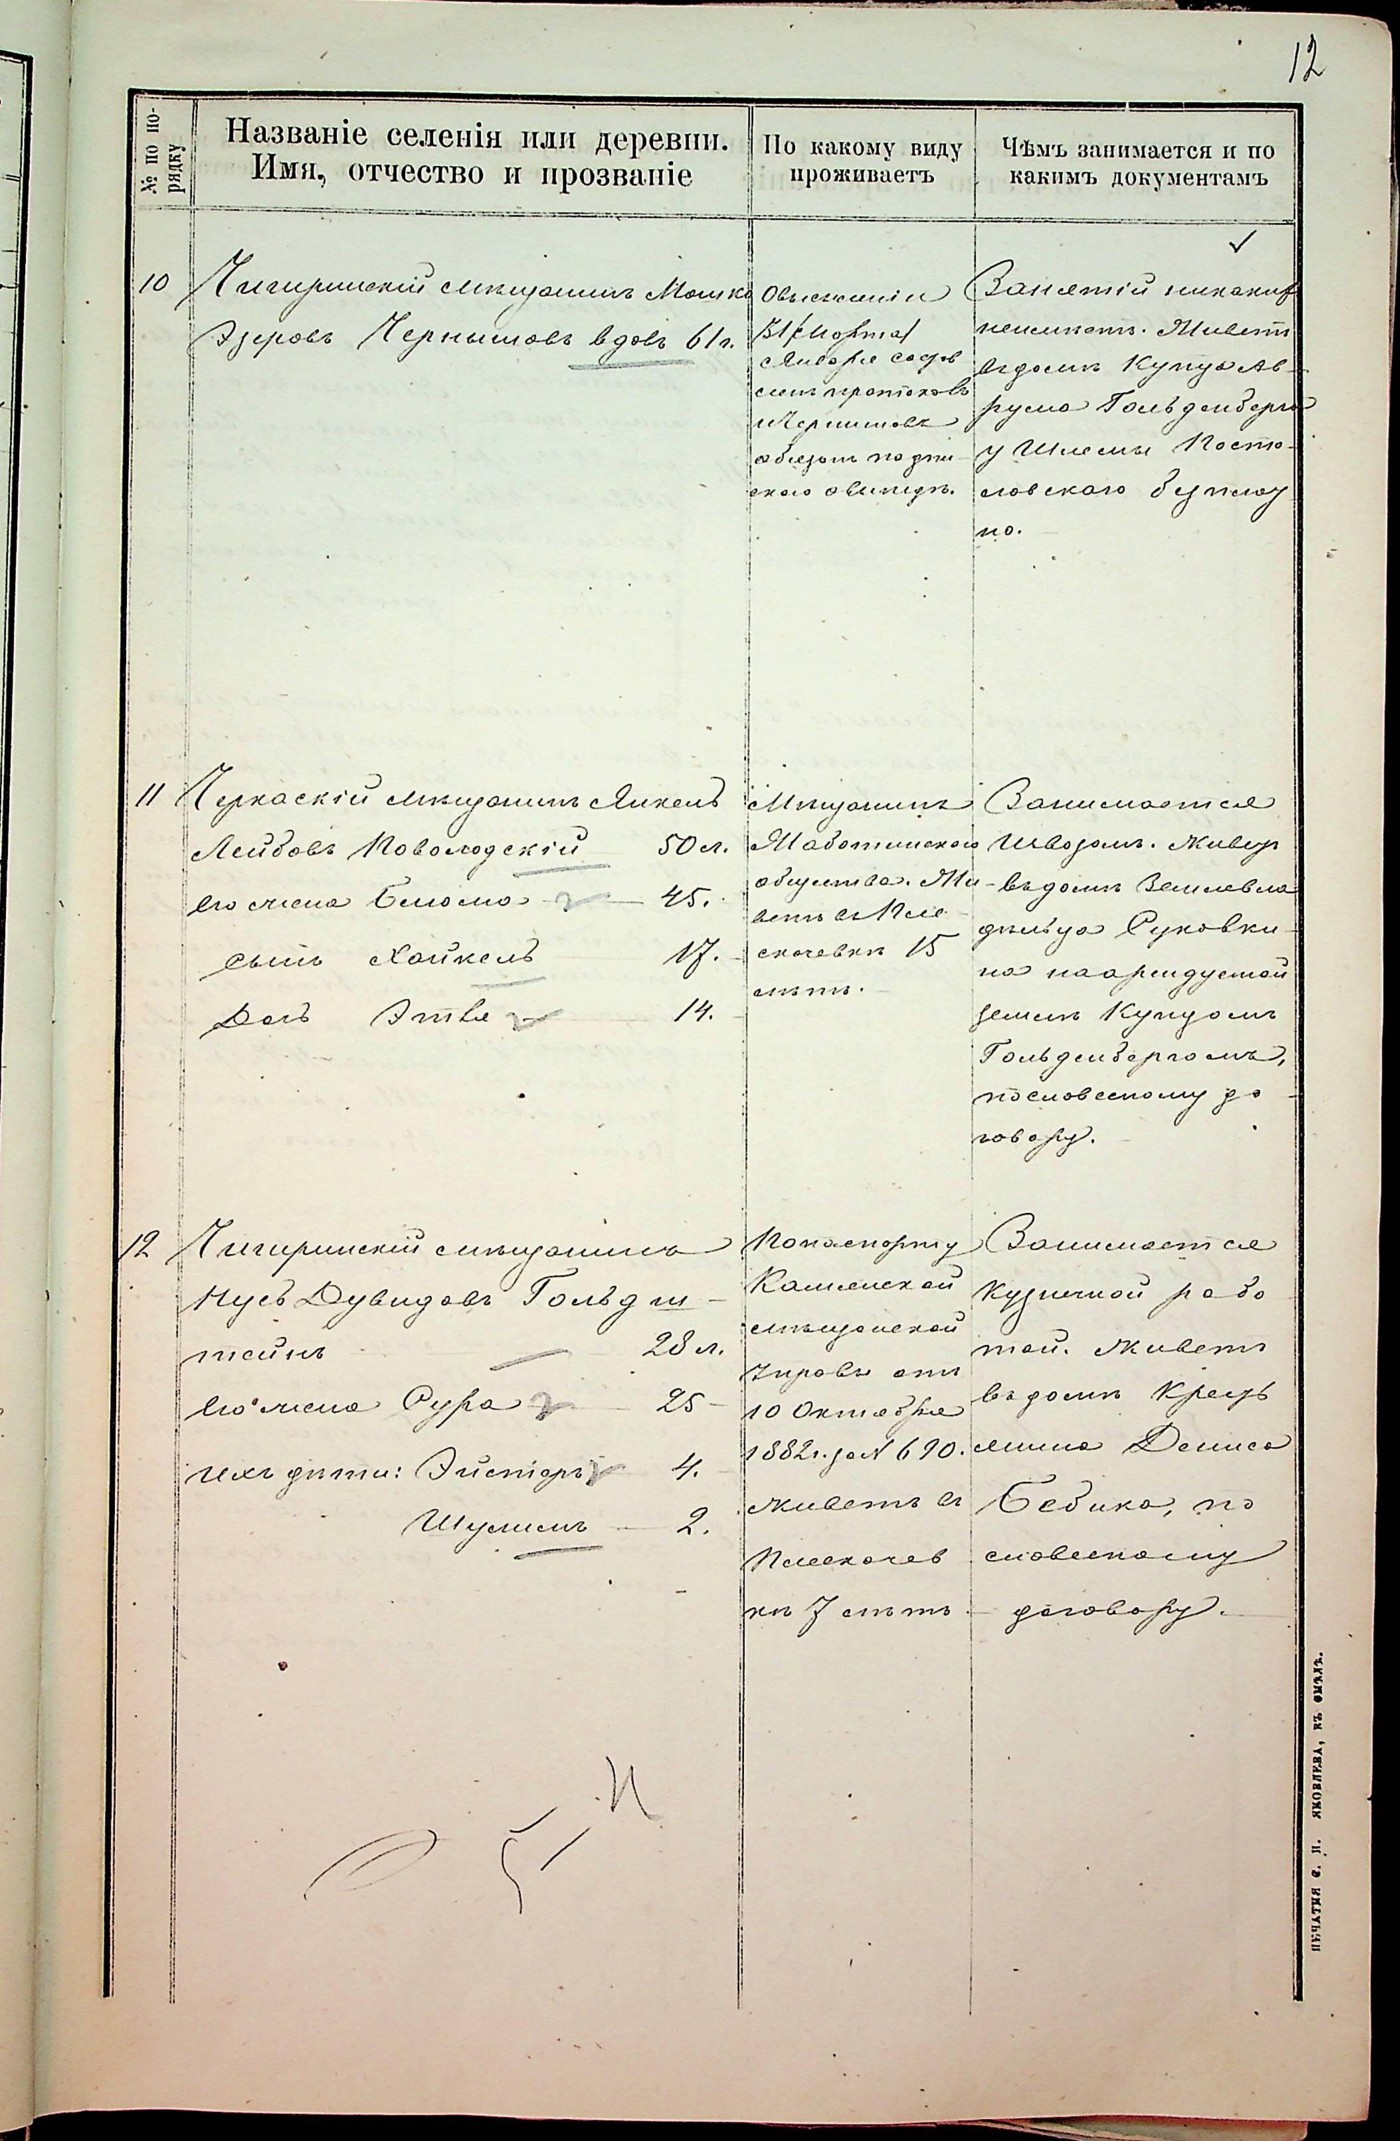 12
№ по по-
рядку
Названіе селенія или деревни.
Имя, отчество и прозваніе
По какому виду
проживаетъ
Чѣмъ занимается и по
какимъ документамъ
10
Чигиринскій мѣщанинъ Мошко
Эзеровъ Чернышовъ вдовъ 61 г.
О выселеніи
31 / Марта /
Января состав
ленъ протоколъ
Чернышовъ
обязанъ подпи-
скою о выѣздѣ.
Занятій никакихъ
неимѣетъ. Живетъ
въ домѣ Купца Ав-
рума Гольденберга
у Шлемы
словского безплат
но.
11
Черкаскій мѣщанинъ Янкель
Лейбовъ Поволодскій 50 л.
его жена Блюма 45.
сынъ Хайкель 17.
Дочь Этля 14.
Мѣщанинъ
Жаботинскаго
общества. Жи-
ветъ въ Пле
скачевкѣ 15
лѣтъ.
Занимается
извозомъ. живетъ
въ домѣ Землевла
дѣльца Руковки
на наарендуемой
землѣ Купцомъ
Гольденбергомъ,
пословесному до
говору.
12
Чигиринскій мѣщанинъ
Нусь Дувидовъ Гольдш-
тейнъ 28 л.
его жена Сура 25
ихъ дѣти: Эйстеръ 4.
Шулимъ 2.
Попаспорту
Каменской
мѣщанской
Управы отъ
10 Октября
1882 г. за N 690.
живетъ въ
Плескачев
кѣ 7 лѣтъ
Занимается
Кузнечной рабо
той. живетъ
въ домѣ Кресть
янина Дениса
Бебика, по
словесному
договору.
ПЕЧАТНЯ С. П. ЯКОВЛЕВА, ВЪ СМѢЛѢ.